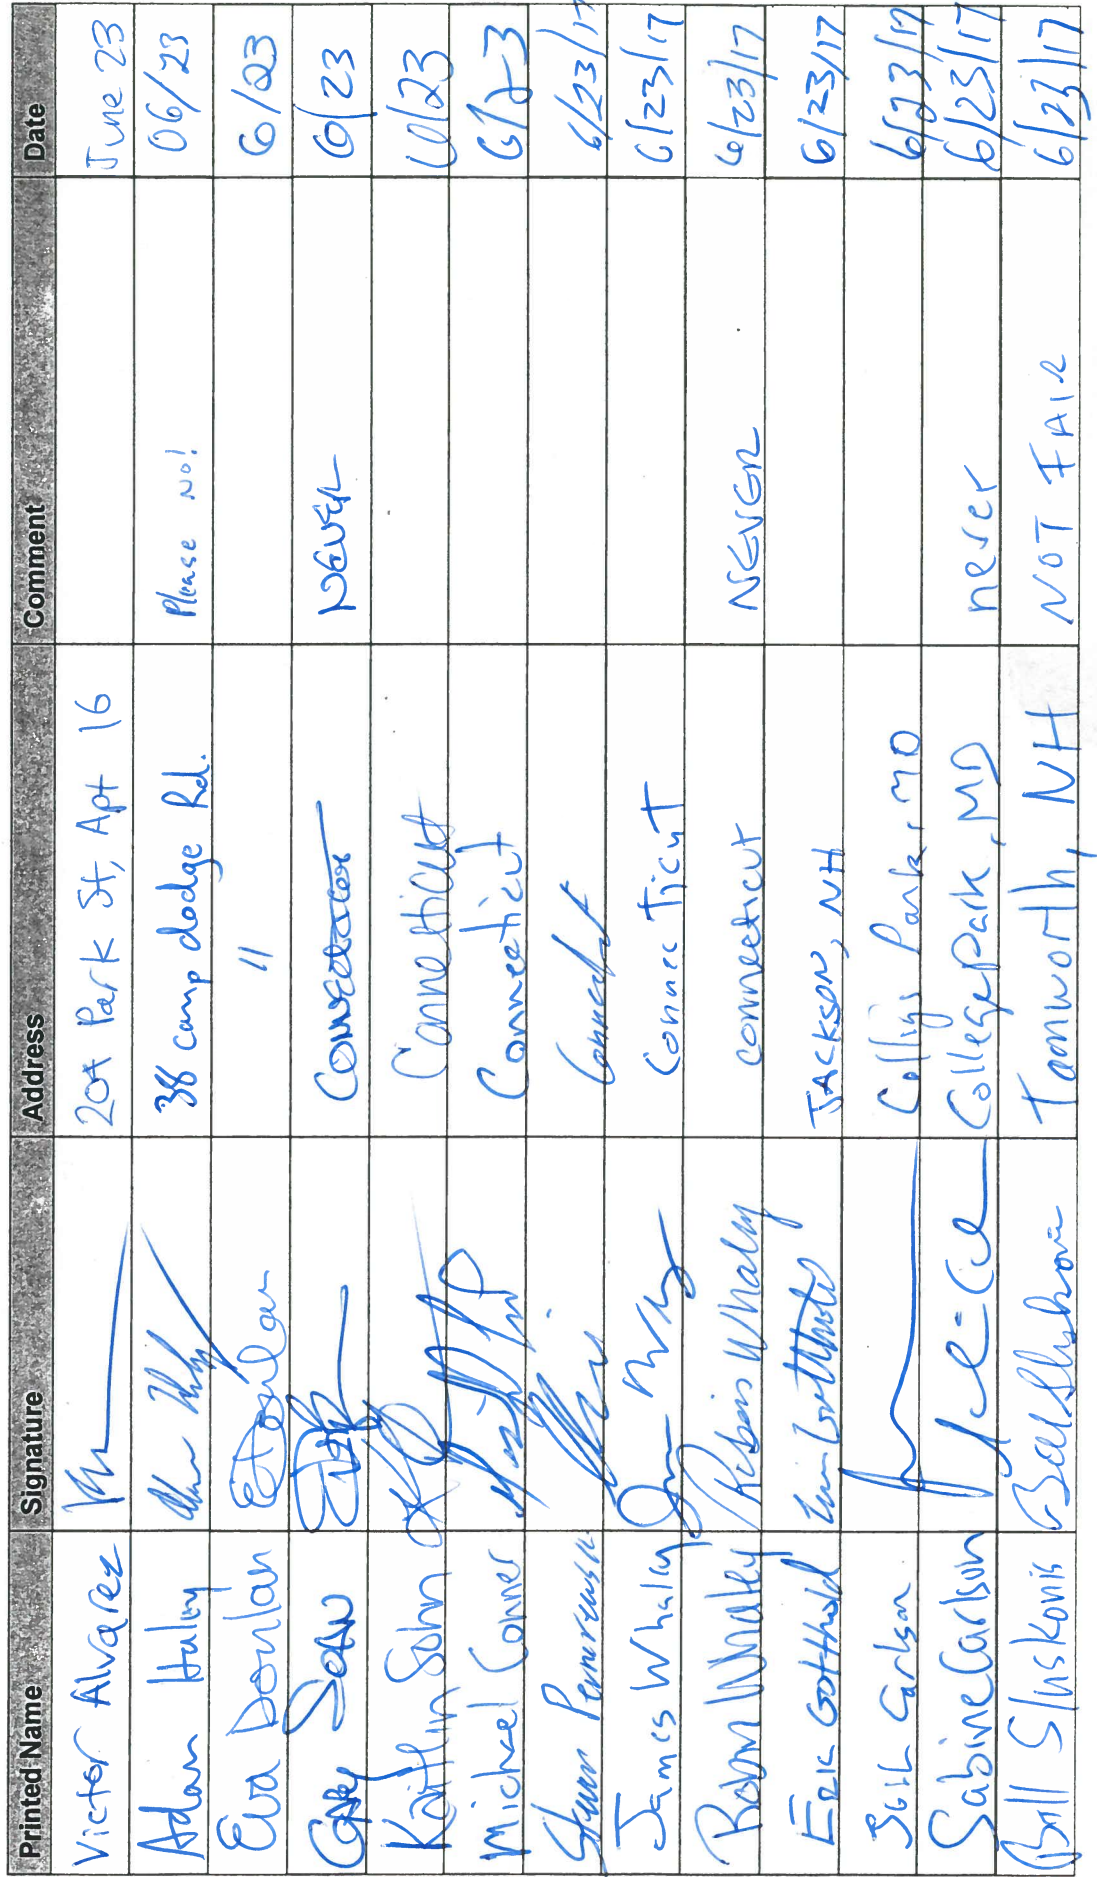 Printed Name Signature Address Comment Date
Victor Alvarez 20A Park St, Apt 16 June 23
Adam Haley 38 camp dodge Rd. Please No! 06/23
Eva Donlan EDonlan " 6/23
Gary NEVER 6/23
Kaitlin Sohn Conneticut 6/23
Michael Conner Connecticut 6/23
6/23/17
James Whaley Connecticut 6/23/17
Robin Whaley Robin Whaley connecticut NEVER 6/23/17
Eric Gotthold JACKSON, NH 6/23/17
Carlson Park, MD 6/23/17
Sabine Carlson College Park, MD never 6/23/17
Bill Sluskonis Tamworth, NH NOT FAIR 6/23/17